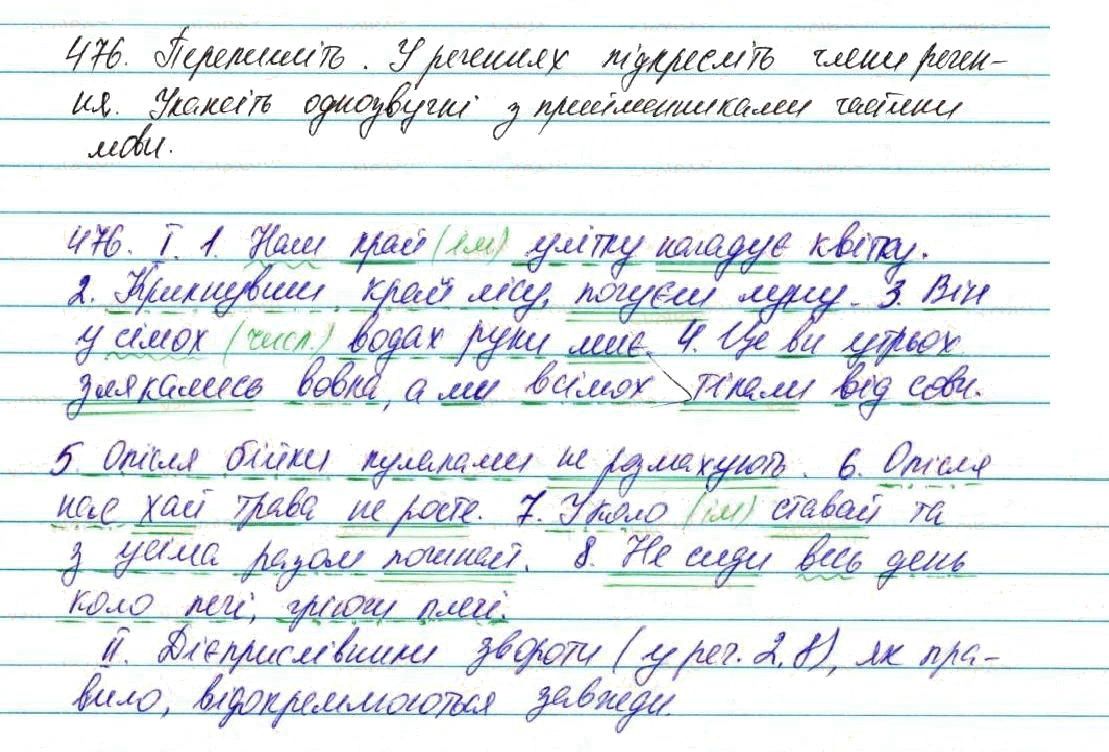 476. Перепишіть. У реченнях підкресліть члени речен-
ня. Укажіть однозвучні з прийменниками частини
мови.
476. І. 1. Наш край (ім) улітку нагадує квітку.
2. Крикнувши край лісу, почуєш луну. 3. Він
у сімох (числ.) водах руки миє. 4. Це ви утрьох
злякались вовка, а ми всімох тікали від сови.
5. Опісля бійки кулаками не розмахують. 6. Опісля
нас хай трава не росте. 7. У коло (ім) ставай та
з усіма разом починай. 8. Не сиди весь день
коло печі, гріючи плечі.
ІІ. Дієприслівники звороти (у реч. 2, 8), як пра-
вило, відокремлюються завжди.